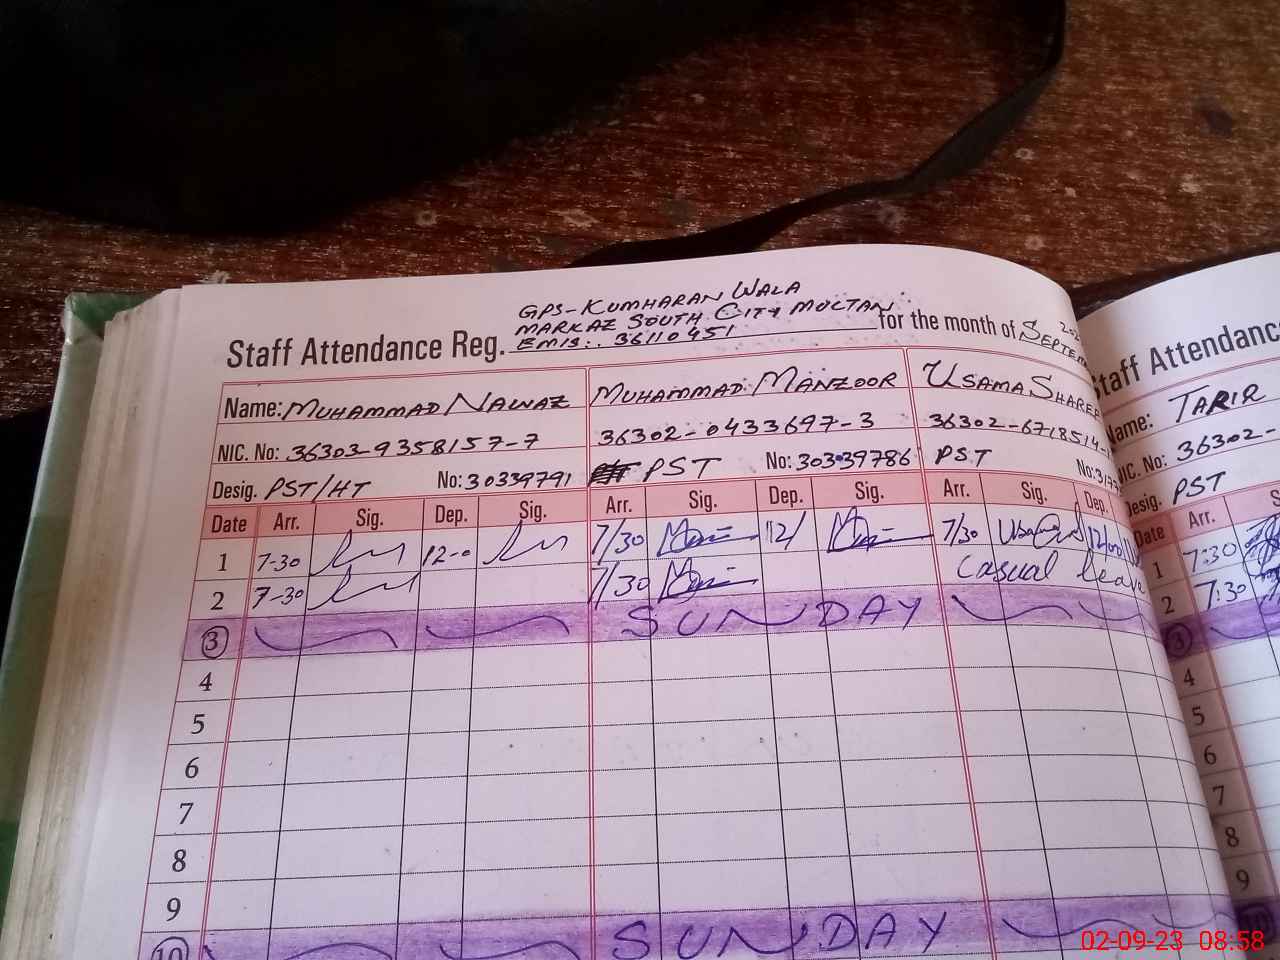 GPS-KUMHARAN WALA
MARKAZ SOUTH CITY MULTAN
Staff Attendance Reg. EMIS:. 36110451 for the month of
Name: MUHAMMAD NAWAZ MUHAMMAD MANZOOR USAMA SHAREE
NIC. No: 36303-9358157-7 36302-0433697-3 36302-6718514-
Desig. PST/HT No: 30339791 PST No: 30339786 PST No:
Date Arr. Sig. Dep. Sig. Arr. Sig. Dep. Sig. Arr. Sig. Dep.
1 7-30 12-0 7/30 12/ 7/30 12/00
2 7-30 7/30 Casual leave
3 SUNDAY
4
5
6
7
8
9
10 SUNDAY
Staff Attendanc
Name: TARIR
NIC. No: 36302-
Desig. PST
Date Arr.
1 7:30
2 7:30
3
4
5
6
7
8
9
10
02-09-23 08:58